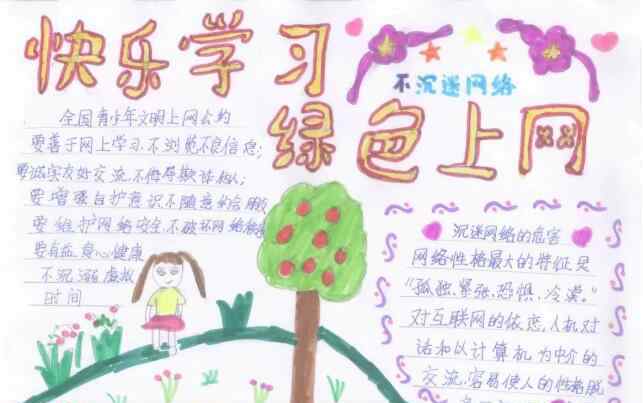 快乐学习
不沉迷网络
绿色上网
全国青少年文明上网公约
要善于网上学习,不浏览不良信息;
要诚实友好交流,不侮辱欺诈他人;
要增强自护意识不随意约会网友
要维护网络安全,不破坏网络秩序
要有益身心健康
不沉溺虚拟
时间
沉迷网络的危害
网络性格最大的特征是
“孤独、紧张、恐惧、冷漠。”
对互联网的依恋,人机对
话和以计算机为中介的
交流,容易使人的性格脱